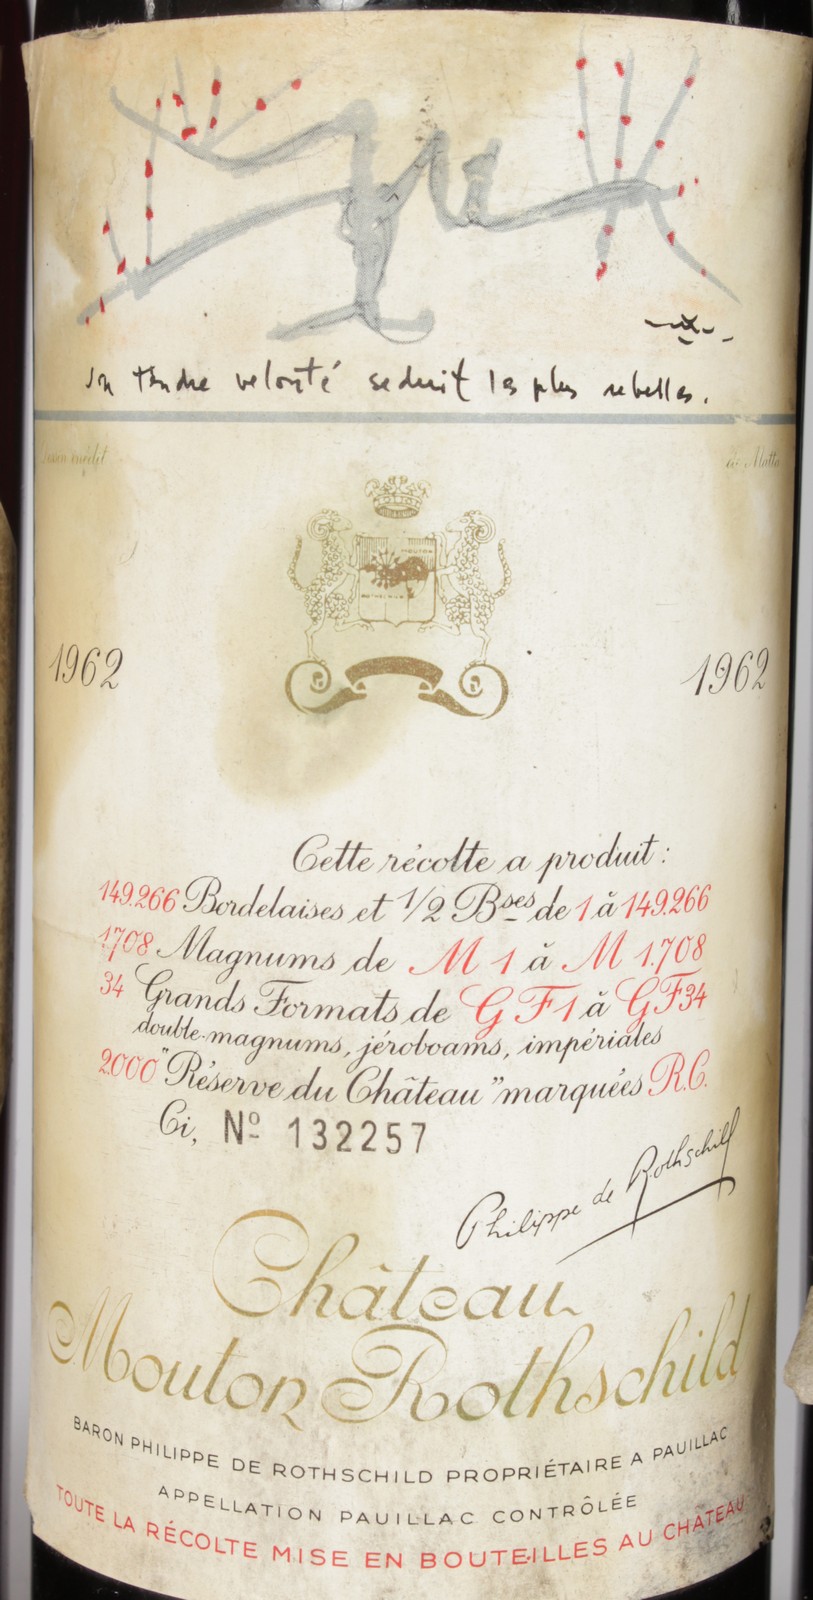 son tendre velouté séduit les plus rebelles.
Dessin inédit
de Matta
MOUTON
ROTHSCHILD
1962
1962
Cette récolte a produit :
149.266 Bordelaises et 1/2 Bses de 1 à 149.266
1708 Magnums de M 1 à M 1.708
34 Grands Formats de G F 1 à G F 34
double-magnums, jéroboams, impériales
2.000 "Réserve du Château" marquées R.C.
Ci, Nº 132257
Philippe de Rothschild
Château
Mouton Rothschild
BARON PHILIPPE DE ROTHSCHILD PROPRIÉTAIRE A PAUILLAC
APPELLATION PAUILLAC CONTRÔLÉE
TOUTE LA RÉCOLTE MISE EN BOUTEILLES AU CHATEAU